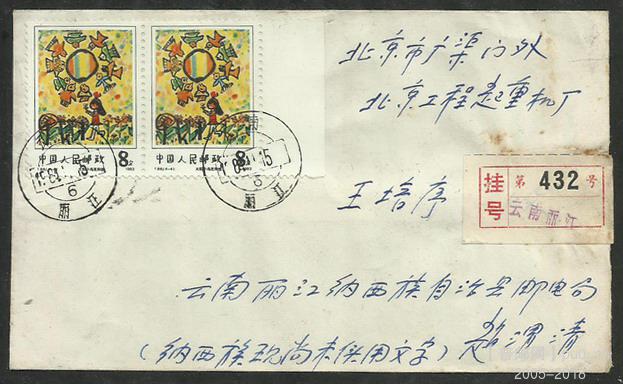 中国人民邮政 8分
1983
中国人民邮政 8分
1983
丽江
6
丽江
挂号
第 432 号
云南丽江
北京市广渠门外
北京工程起重机厂
王培序
云南丽江纳西族自治县邮电局
赵渭清
(纳西族现尚未供用文字)
2005-2018